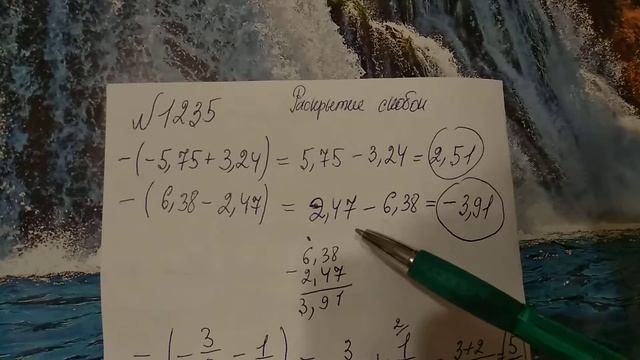 №1235 Раскрытие скобок
-(-5,75+3,24) = 5,75 - 3,24 = 2,51
-(6,38 - 2,47) = 2,47 - 6,38 = -3,91
6,38
- 2,47
3,91